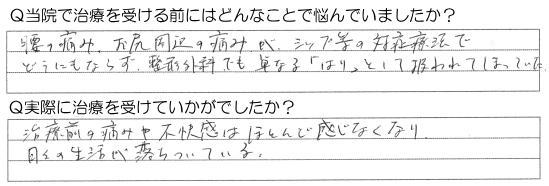 Q当院で治療を受ける前にはどんなことで悩んでいましたか？
腰の痛み、お尻周辺の痛みが、シップ等の対症療法で
どうにもならず、整形外科でも単なる「はり」として扱われてしまっていた
Q実際に治療を受けていかがでしたか？
治療前の痛みや不快感はほとんど感じなくなり
日々の生活が落ちついている。